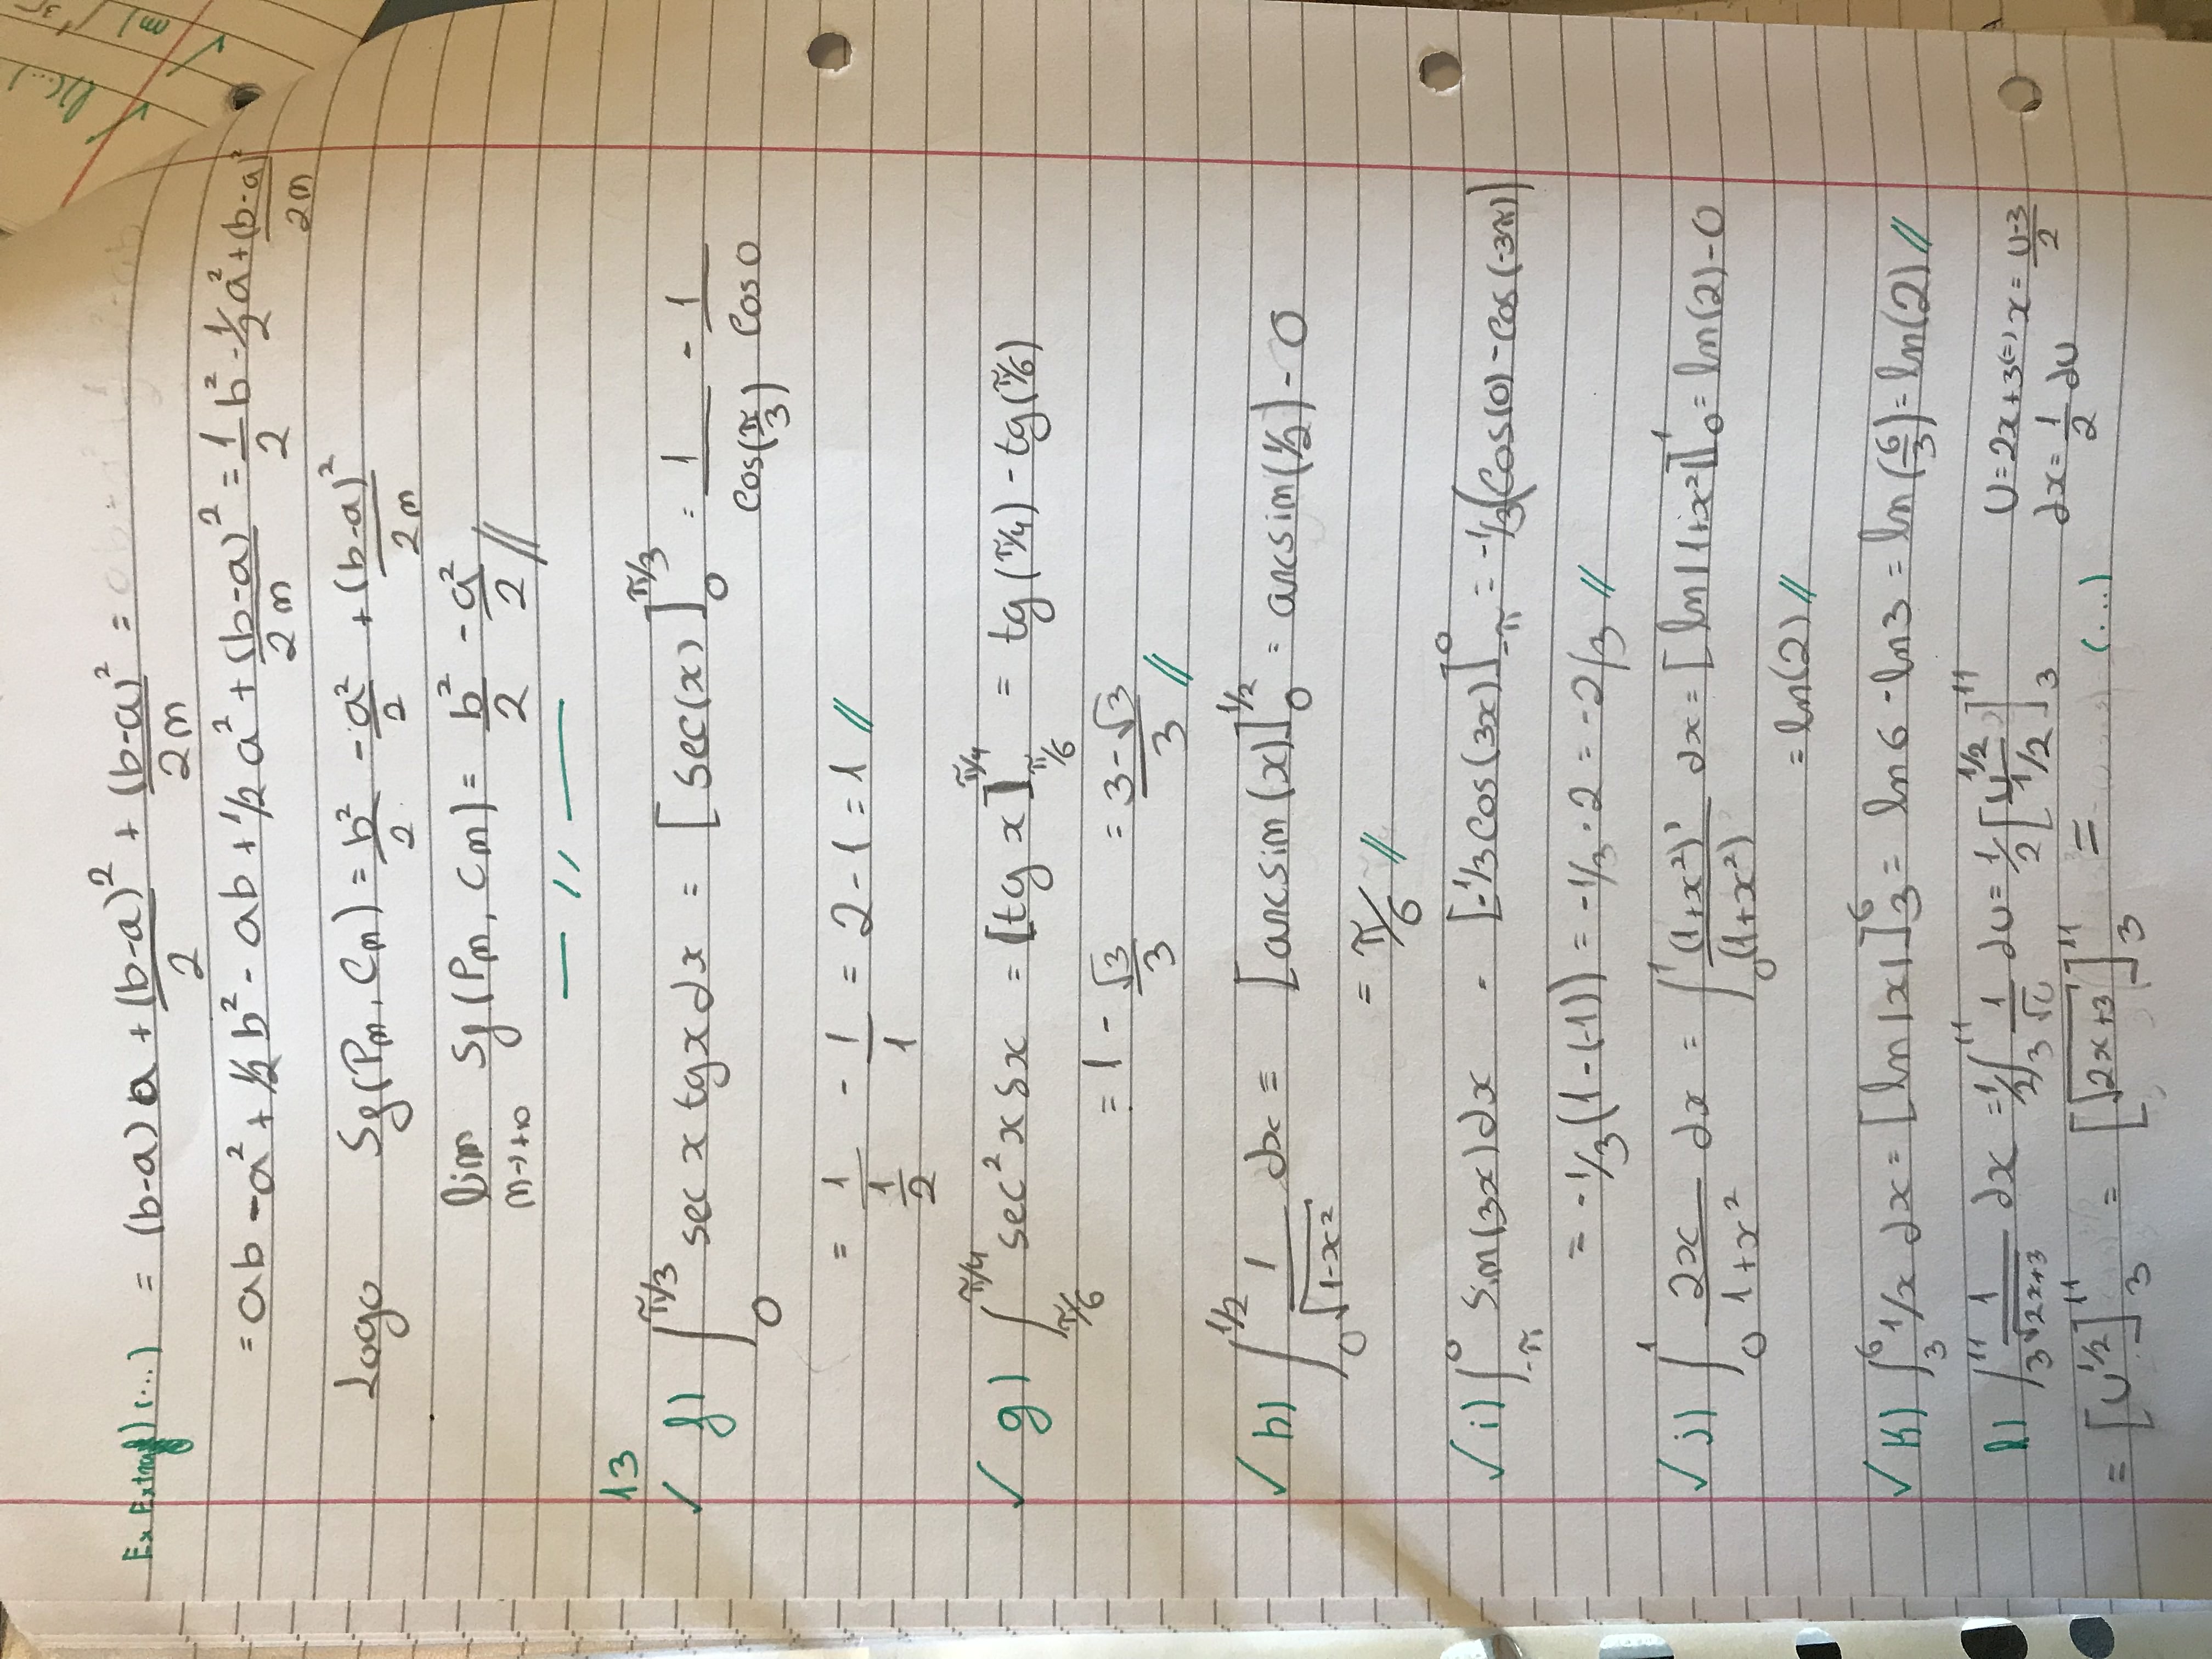 Ex Extra f) (...) = (b-a) a + (b-a)²/2 + (b-a)²/2n =
= ab - a² + 1/2 b² - ab + 1/2 a² + (b-a)²/2n = 1/2 b² - 1/2 a² + (b-a)²/2n
Logo Sf(Pn, Cn) = b²/2 - a²/2 + (b-a)²/2n
lim n→+∞ Sf(Pn, Cn) = b²/2 - a²/2 //
— // —
13
✓ f) ∫₀^π/3 sec x tg x dx = [sec(x)]₀^π/3 = 1/cos(π/3) - 1/cos 0
= 1/(1/2) - 1/1 = 2 - 1 = 1 //
✓ g) ∫_π/6^π/4 sec² x dx = [tg x]_π/6^π/4 = tg(π/4) - tg(π/6)
= 1 - √3/3 = (3-√3)/3 //
✓ h) ∫₀^1/2 1/√(1-x²) dx = [arcsin(x)]₀^1/2 = arcsin(1/2) - 0
= π/6 //
✓ i) ∫_-π^0 sin(3x) dx = [-1/3 cos(3x)]_-π^0 = -1/3(cos(0) - cos(-3π))
= -1/3 (1-(-1)) = -1/3 · 2 = -2/3 //
✓ j) ∫₀^1 2x/(1+x²) dx = ∫₀^1 (1+x²)'/(1+x²) dx = [ln|1+x²|]₀^1 = ln(2) - 0
= ln(2) //
✓ k) ∫₃^6 1/x dx = [ln|x|]₃^6 = ln 6 - ln 3 = ln(6/3) = ln(2) //
l) ∫₃^11 1/√(2x+3) dx = 1/2 ∫₃^11 1/√u du = 1/2 [u^1/2 / 1/2]₃^11 u = 2x+3 (=) x = (u-3)/2
dx = 1/2 du
= [u^1/2]₃^11 = [√(2x+3)]₃^11 = (...)